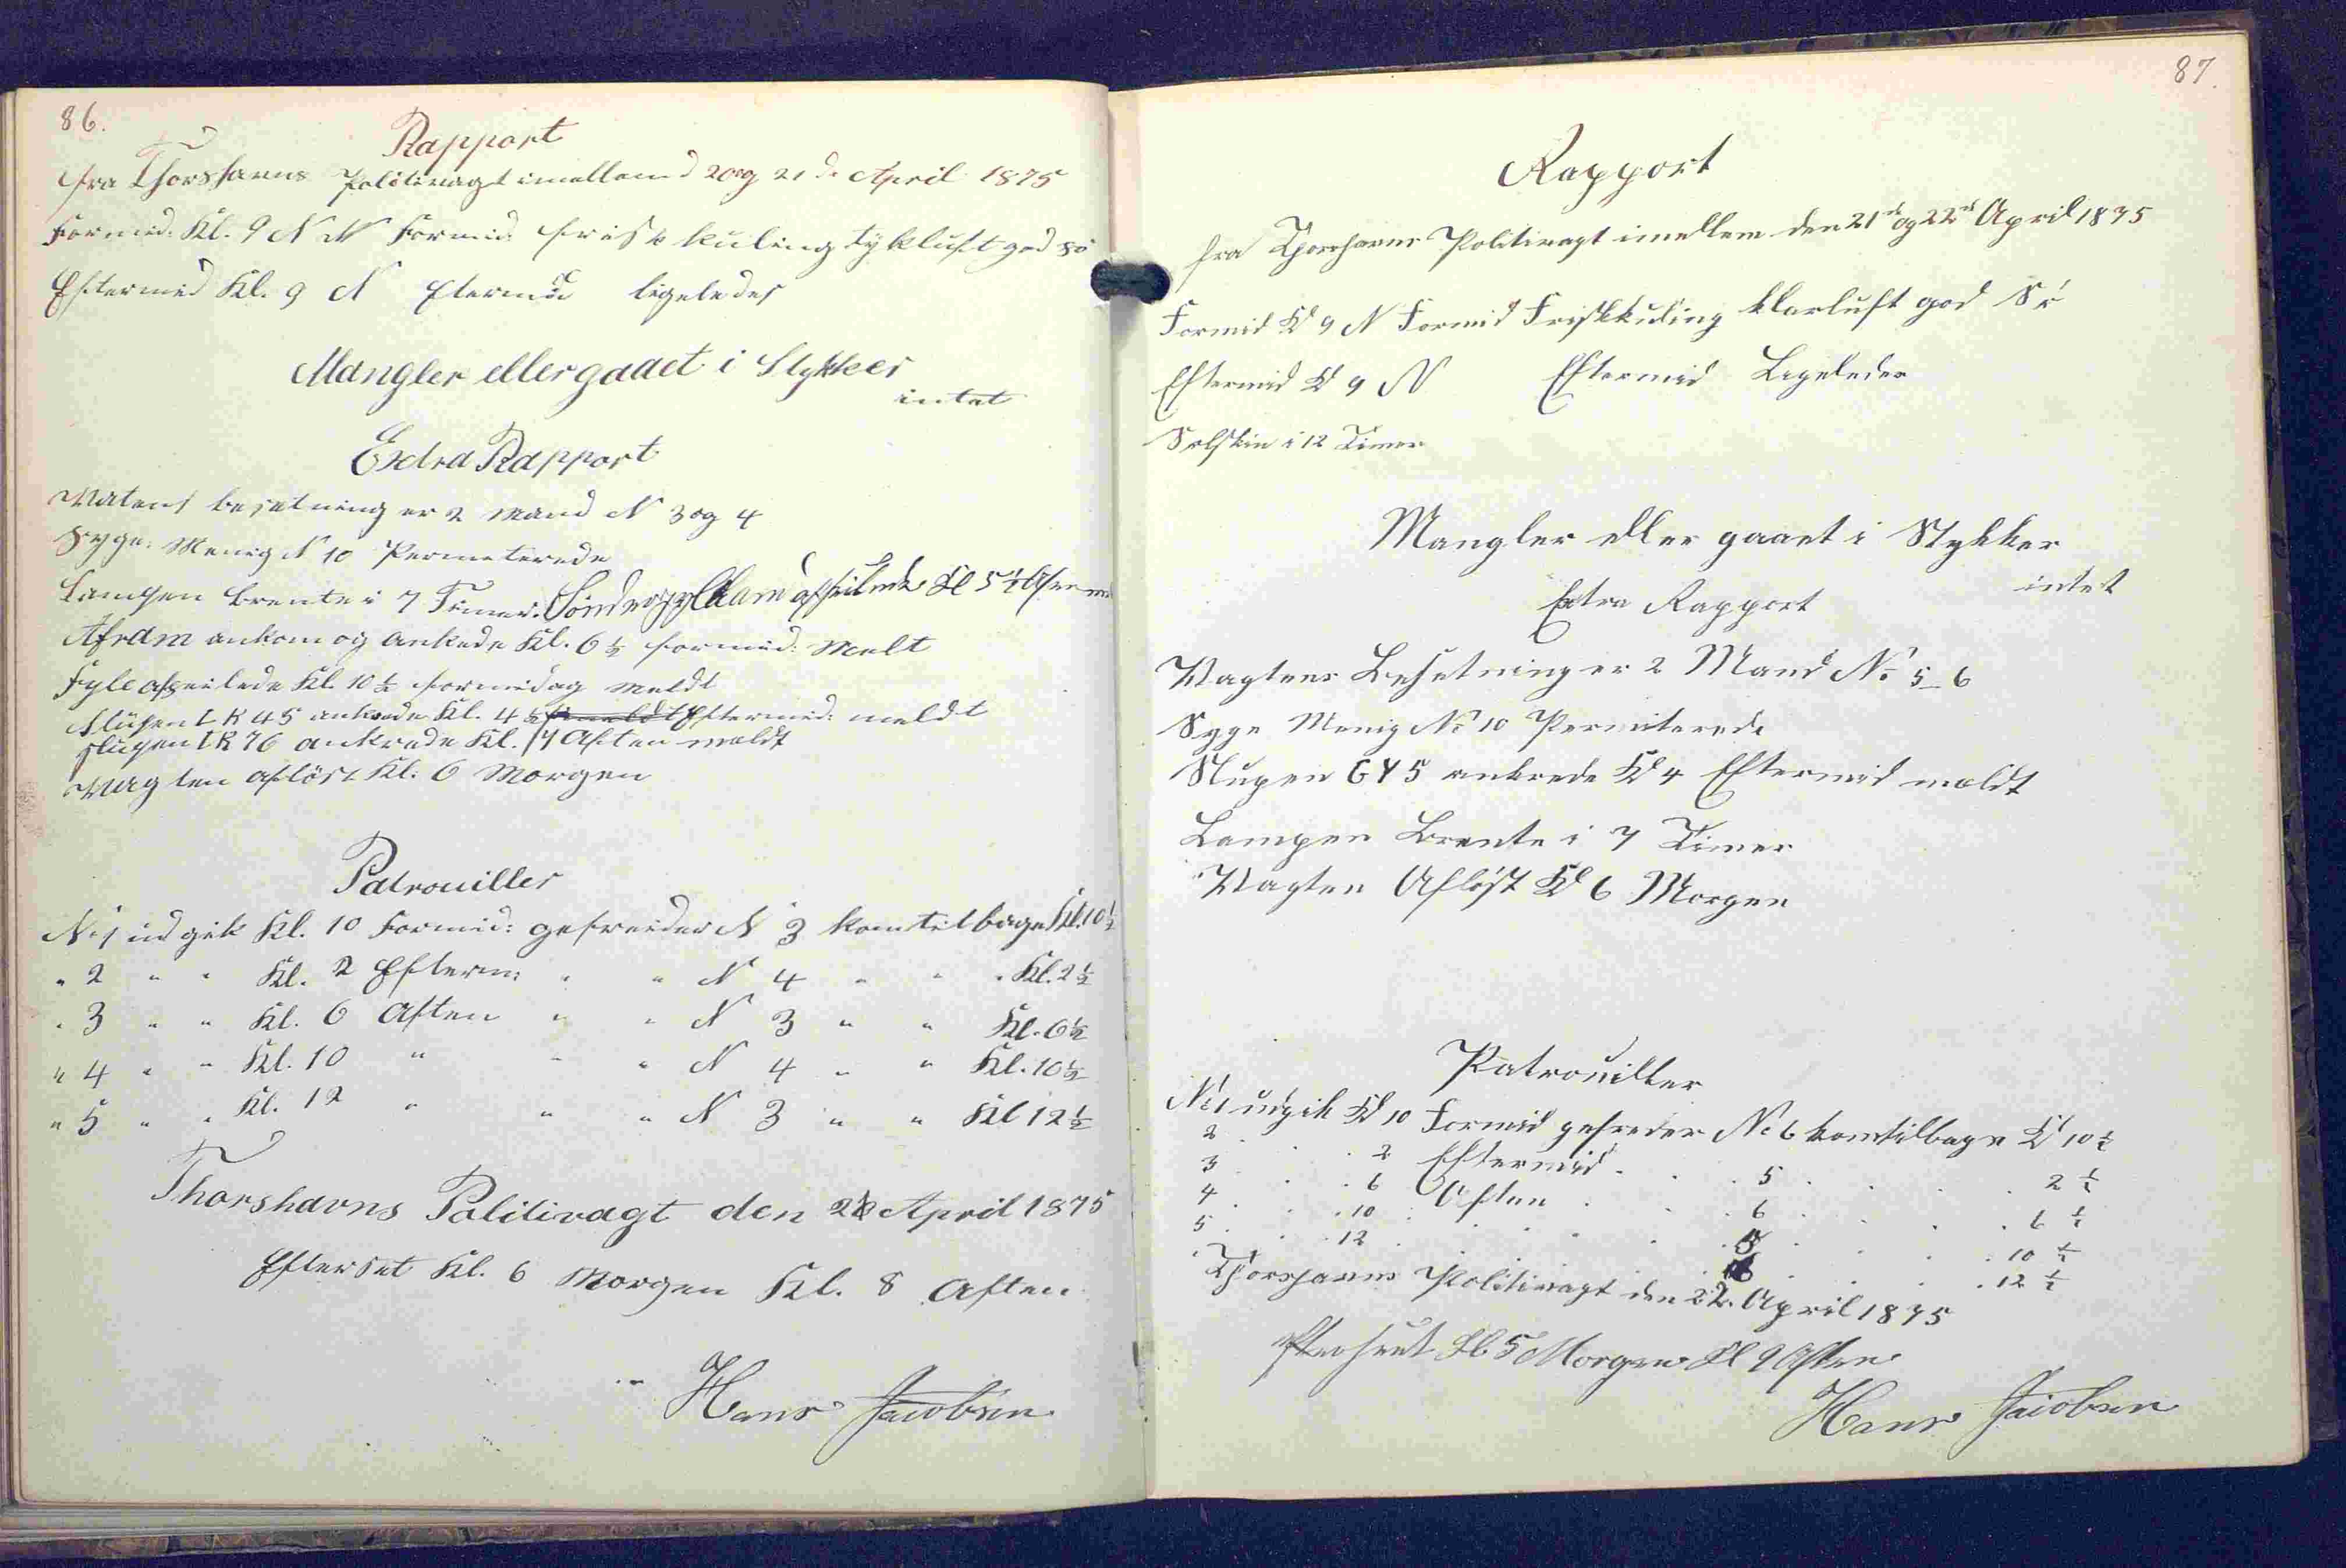 86.
Rapport
fra Thorshavns Politivagt imellem d 20 og 21 d. April 1875
Formid. Kl. 9 N N Formid frisk kuling tykluft god sö
Eftermid Kl. 9 N Eftermid ligeledes
Mangler eller gaaet i Stykker
intet
Extra Rapport
Vatens besetning er 2 Mand N 3 og 4
Syge: Menig N 10 Permeterede
Lampen brente i 7 Timer. afseilede Kl 5½
ankom og ankede Kl. 6½ formid: Melt
Fylle afseilede Kl. 10½ formidag meldt
Slupen L K 45 ankrede Kl. 4½ Eftermid: meldt
slupen T K 76 ankrede Kl. 7 Aften meldt
Vagten aflöst Kl: 6 Morgen
Patrouiller
N: 1 ud gik Kl. 10 Formid: gefreider N 3 kom tilbage Kl. 10½
" 2 " " Kl. 2 Efterm: " " N 4 " " " Kl. 2½
" 3 " " Kl. 6 Aften " " N 3 " " Kl. 6½
" 4 " " Kl. 10 " " " N 4 " " Kl. 10½
" 5 " " Kl. 12 " " " N 3 " " Kl 12½
Thorshavns Politivagt den April 1875
Efterset Kl. 6 Morgen Kl. 8 Aften
Hans Jacobsen
87.
Rapport
fra Thorshavns Politivagt imellem den 21de og 22de April 1875
Formid Kl 9 N Formid Friskkuling klarluft god Sö
Eftermid Kl 9 N Eftermid Ligeledes
Solskin i 12 Timer
Mangler eller gaaet i Stykker
intet
Extra Rapport
Vagtens Besetning er 2 Mand No 5_6
Syge Menig No 10 Permiterede
Slupen ankrede Kl 4 Eftermid meldt
Lampen Brente i 7 Timer
Vagten Aflöst Kl 6 Morgen
Patrouiller
No 1 udgik Kl 10 Formid gefreder No 6 kom tilbage Kl 10½
2 . . 2 Eftermid . . 5 . . . 2½
3 . . 6 Aften . . 6 . . . 6½
4 . . 10 . . . 5 . . . 10½
5 . . 12 . . . 6 . . . 12½
Thorshavns Politivagt den 22. April 1875
Efterseet Kl 5 Morgen Kl 9 Aften
Hans Jacobsen